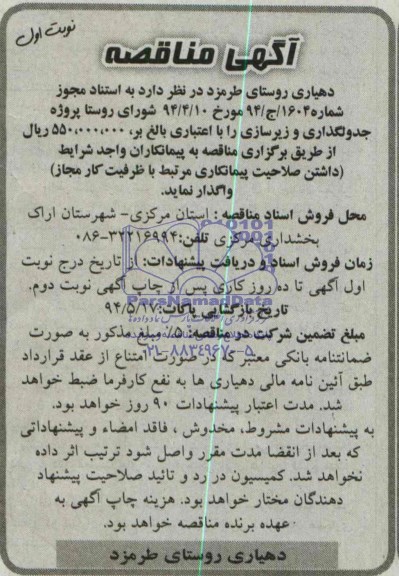 نوبت اول
آگهی مناقصه
دهیاری روستای طرمزد در نظر دارد به استناد مجوز
شماره ۱۶۰۴/ج/۹۴ مورخ ۹۴/۴/۱۰ شورای روستا پروژه
جدولگذاری و زیرسازی را با اعتباری بالغ بر، ۵۵۰,۰۰۰,۰۰۰ ریال
از طریق برگزاری مناقصه به پیمانکاران واجد شرایط
(داشتن صلاحیت پیمانکاری مرتبط با ظرفیت کار مجاز)
واگذار نماید.
محل فروش اسناد مناقصه : استان مرکزی- شهرستان اراک
بخشداری مرکزی تلفن: ۳۲۲۱۶۹۹۴-۰۸۶
زمان فروش اسناد و دریافت پیشنهادات: از تاریخ درج نوبت
اول آگهی تا ده روز کاری پس از چاپ آگهی نوبت دوم.
ParsNamadData
تاریخ بازگشایی پاکات: ۹۴/۵/۱۷
مبلغ تضمین شرکت در مناقصه: ۵٪ مبلغ مذکور به صورت
۰۲۱-۸۸۳۴۹۶۷۰-۵
ضمانتنامه بانکی معتبر که در صورت امتناع از عقد قرارداد
طبق آئین نامه مالی دهیاری ها به نفع کارفرما ضبط خواهد
شد. مدت اعتبار پیشنهادات ۹۰ روز خواهد بود.
به پیشنهادات مشروط، مخدوش ، فاقد امضاء و پیشنهاداتی
که بعد از انقضا مدت مقرر واصل شود ترتیب اثر داده
نخواهد شد. کمیسیون در رد و تائید صلاحیت پیشنهاد
دهندگان مختار خواهد بود. هزینه چاپ آگهی به
عهده برنده مناقصه خواهد بود.
دهیاری روستای طرمزد